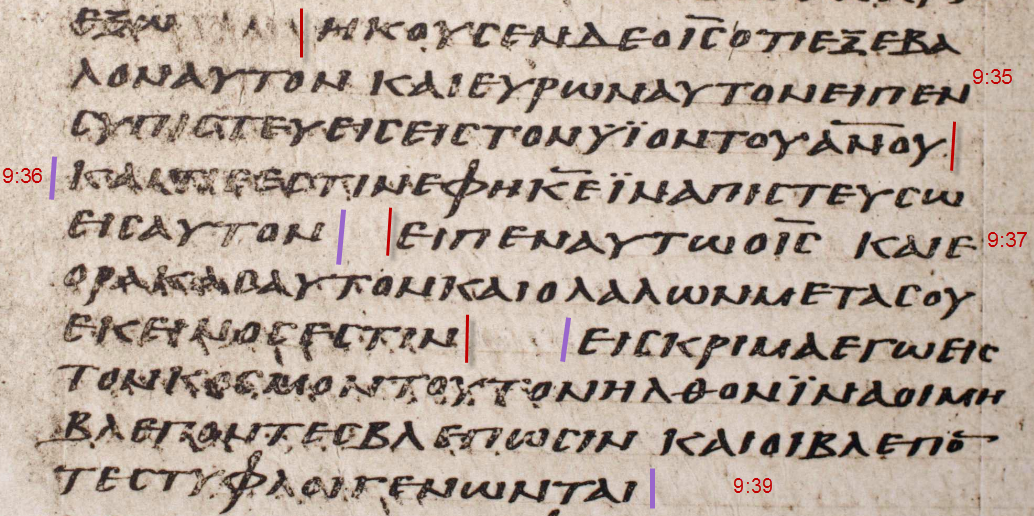 ΕΞΩ ΗΚΟΥϹΕΝΔΕΟΙ̅Ϲ̅ΟΤΙΕΞΕΒΑ
ΛΟΝΑΥΤΟΝ ΚΑΙΕΥΡΩΝΑΥΤΟΝΕΙΠΕΝ 9:35
ϹΥΠΙϹΤΕΥΕΙϹΕΙϹΤΟΝΫΪΟΝΤΟΥΑ̅Ν̅Ο̅Υ̅
9:36 ΚΑΙΤΙϹΕϹΤΙΝΕΦΗΚ̅Ε̅ΪΝΑΠΙϹΤΕΥϹΩ
ΕΙϹΑΥΤΟΝ ΕΙΠΕΝΑΥΤΩΟΙ̅Ϲ̅ ΚΑΙΕ 9:37
ΟΡΑΚΑϹΑΥΤΟΝΚΑΙΟΛΑΛΩΝΜΕΤΑϹΟΥ
ΕΚΕΙΝΟϹΕϹΤΙΝ ΕΙϹΚΡΙΜΑΕΓΩΕΙϹ
ΤΟΝΚΟϹΜΟΝΤΟΥΤΟΝΗΛΘΟΝΪΝΑΟΙΜΗ
ΒΛΕΠΟΝΤΕϹΒΛΕΠΩϹΙΝ ΚΑΙΟΙΒΛΕΠΟ̅
ΤΕϹΤΥΦΛΟΙΓΕΝΩΝΤΑΙ 9:39